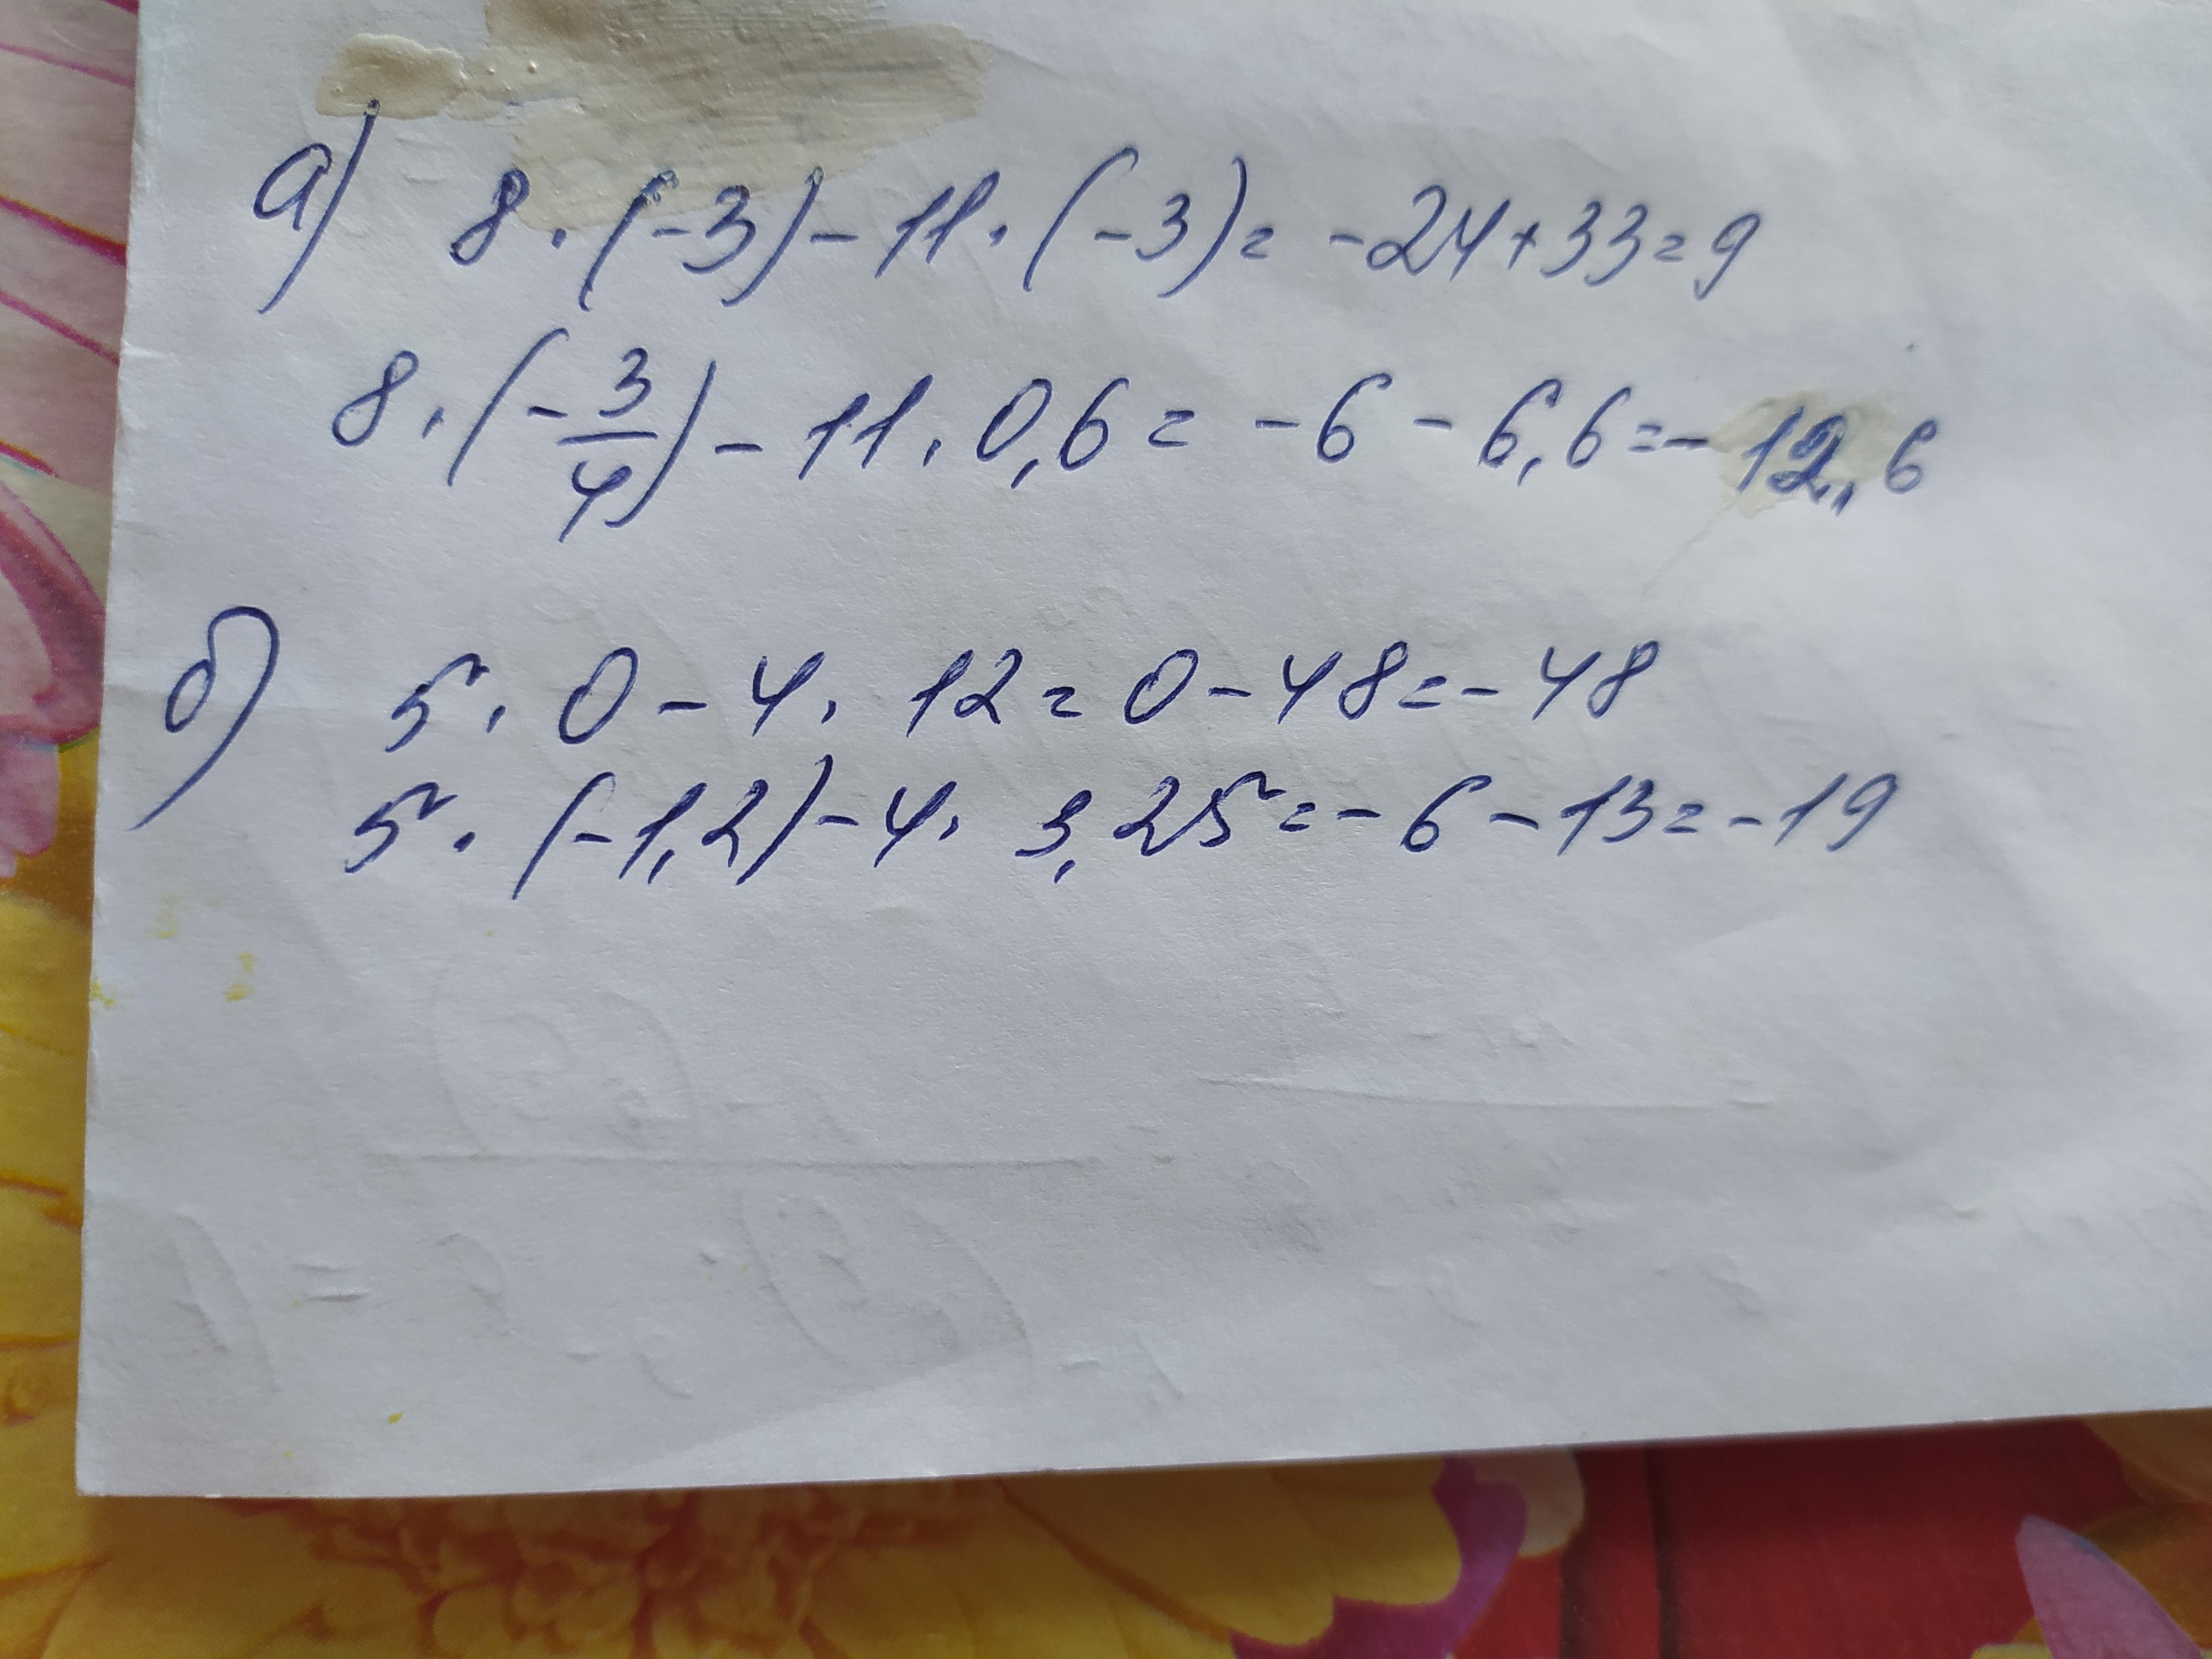 а) 8 · (-3) - 11 · (-3) = -24 + 33 = 9
8 · (-3/4) - 11 · 0,6 = -6 - 6,6 = -12,6
б) 5 · 0 - 4 · 12 = 0 - 48 = -48
5 · (-1,2) - 4 · 3,25 = -6 - 13 = -19